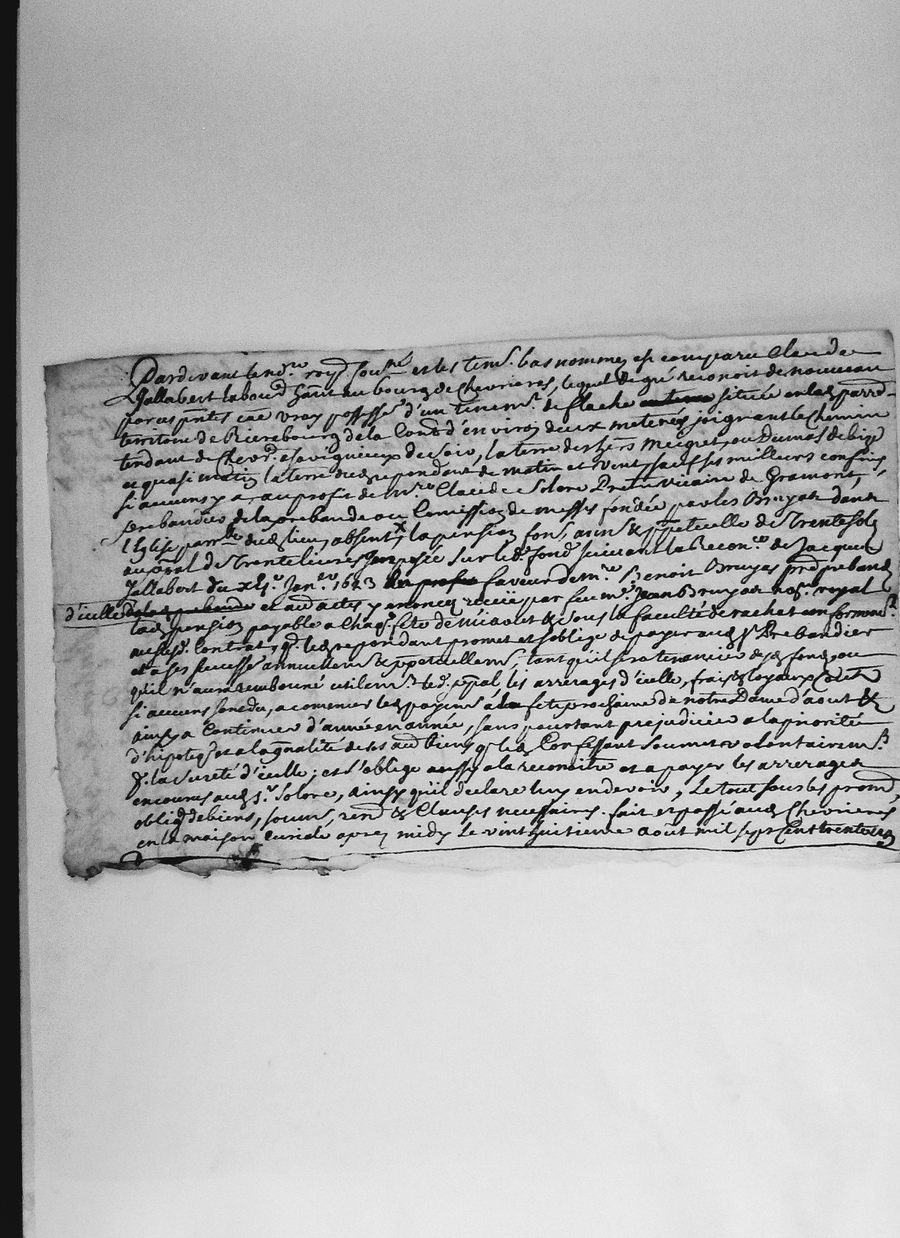 Pardevant le no.re roy.l sous.né et les tem.s bas nommez est comparu Claude
Jallabert labour.r hant au bourg de Chevrieres, lequel de gré reconoit de nouveau
par ces pntes etre vray possess.r d'un tenem.t de située en lad. parr.e
territoire de de la Cont.e d'environ deux materés joignant le Chemin
tendant de Chev.rs a de soir, la terre des h.ers Megret, ou Dumas de bize
et quasi matin la terre dud. repondant de matin et vent sauf ses meilleurs confins
si aucuns y a, au profit de M.re Claude Solore Pretre vicaire de Gramont,
Prebandier de la prebande ou Comission de messes fondée par les Bruyas dans
l'Eglise parr.le dud. lieu, absent, la pension fon.e ann.le & p.petuelle de Trente sols
au p.pal de Trente livres Imposée sur led. fond suivant la Recon.ce de Jacques
Jallabert du Jan.er 1623 faveur de M.re Benoit Bruyas pred. prebandier
d'icelle et aud. actes y enoncez receüe par feu m.e Jean Bruyas no.re royal
lad. pension payable a chaq. fete de & sous la faculté de rachat conformem.t
ausd. Contrats, q. led. repondant promet et s'oblige de payer aud. s.r Prebandier
et a ses success.rs annuellem.t & p.petuellem.t, tant qu'il sera tenancier dud. fond, ou
qu'il n'aura remboursé utilem.t led. p.pal, les arrerages d'icelle, frais & loyaux Couts
si aucuns sont du, a comencer led. payem.t a la fete prochaine de notre Dame d'aout &
ainsy a Continuer d'année en année, sans pourtant prejudicier a la priorité
d'hipoteq. et a la qualité de ses aud. biens q. led. Confessant soumet volontairem.t
p.r la sureté d'icelle; et s'oblige aussy a la reconoitre et a payer les arrerages
encourus aud. s.r Solore, ainsy qu'il declare luy en devoir; Le tout sous les prom.,
oblig. de biens, soum., ren. & Clauses necessaires. fait et passé aud. Chevrieres
en la maison curiale apres midy Le vint huitieme aout mil sept Cent trente